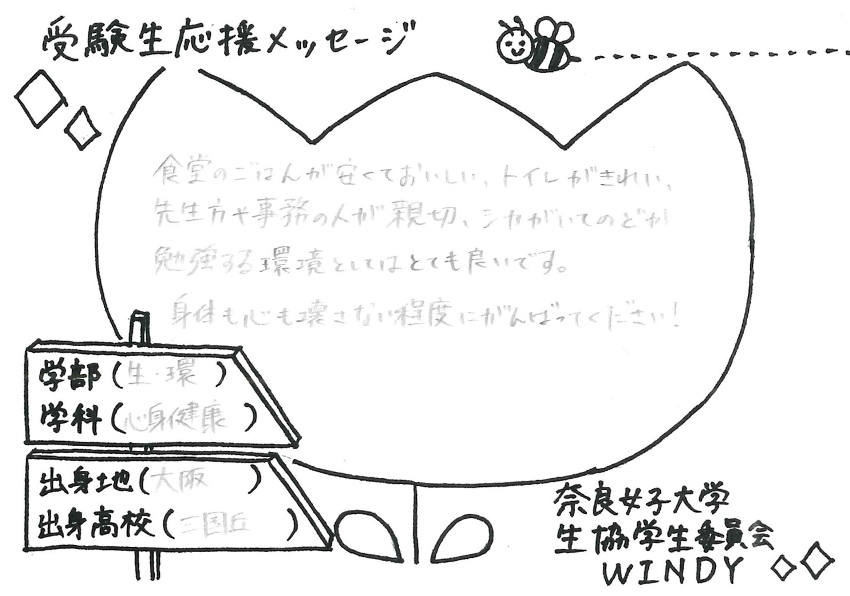 受験生応援メッセージ
食堂のごはんが安くておいしい、トイレがきれい、
先生方や事務の人が親切、シカがいてのどか
勉強する環境としてはとても良いです。
身体も心も壊さない程度にがんばってください！
学部（生・環）
学科（心身健康）
出身地（大阪）
出身高校（三国丘）
奈良女子大学
生協学生委員会
WINDY